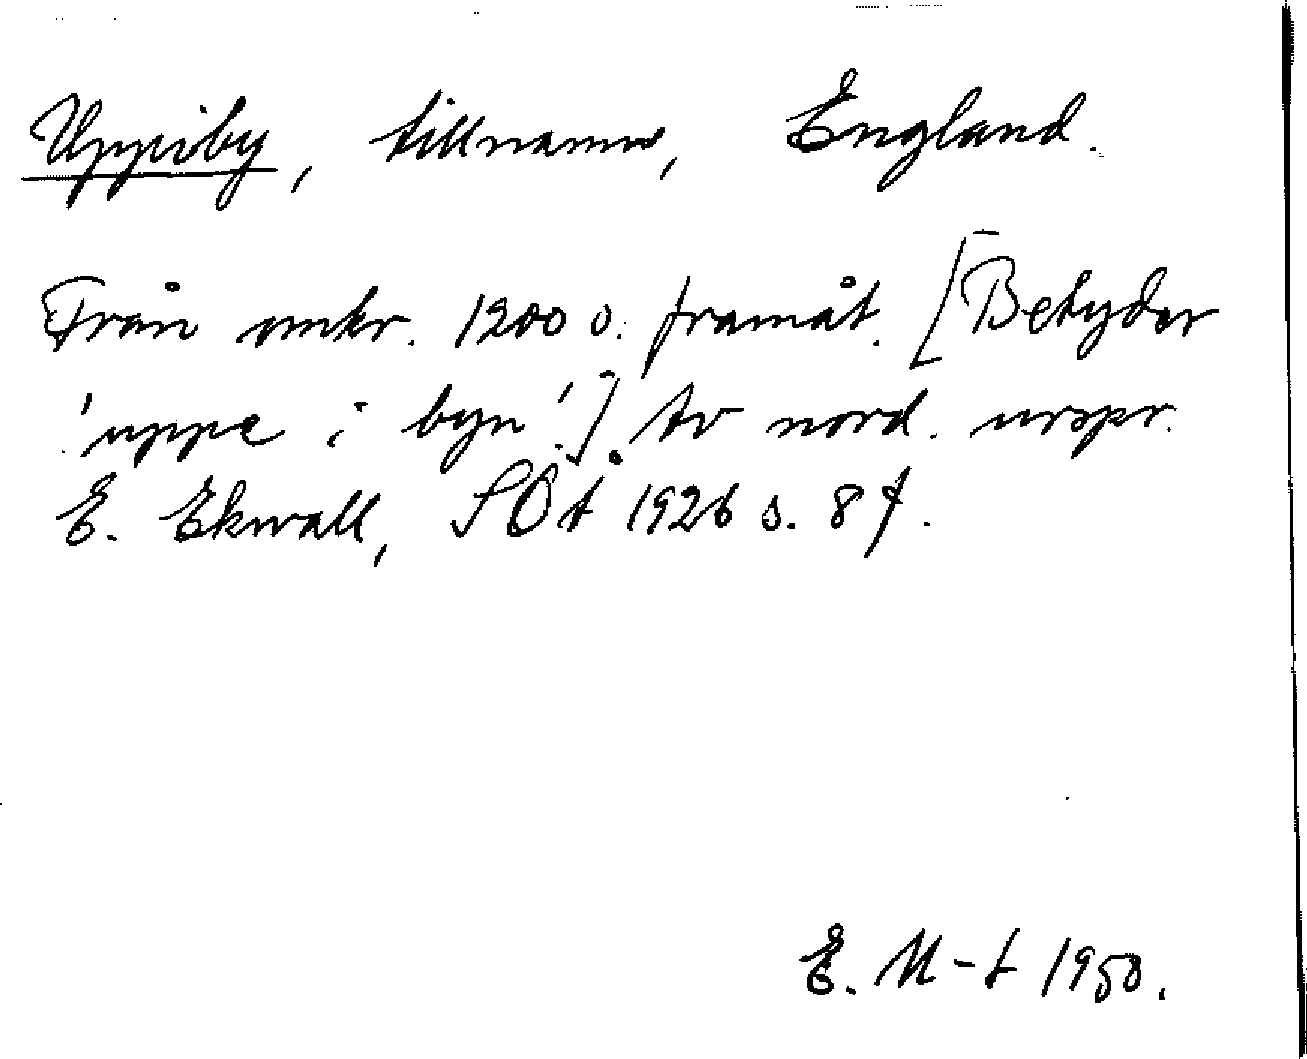 Uppiby, tillnamn, England.
Från omkr. 1200 o. framåt. [Betyder
'uppe i byn'.] Av nord. urspr.
E. Ekwall, SOÅ 1926 s. 8 f.
E. M-t 1950.